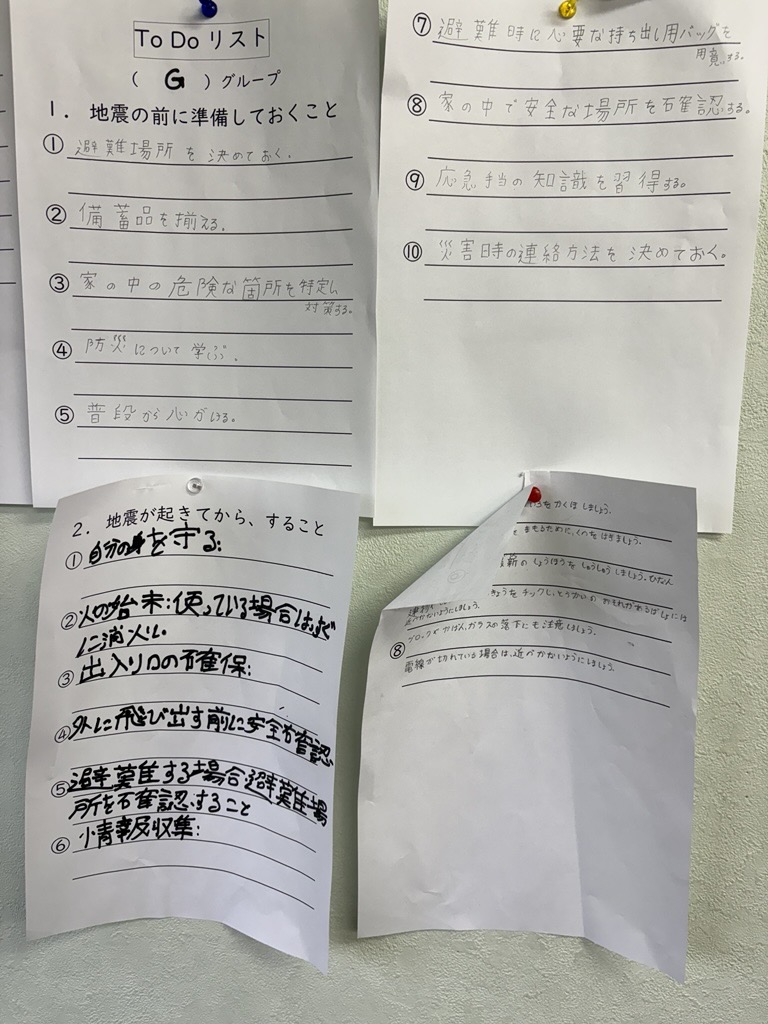 To Do リスト
( G ) グループ
1. 地震の前に準備しておくこと
① 避難場所を決めておく.
② 備蓄品を揃える.
③ 家の中の危険な箇所を特定し
対策する。
④ 防災について学ぶ.
⑤ 普段から心がける。
⑦ 避難時に必要な持ち出し用バッグを
用意する.
⑧ 家の中で安全な場所を確認する.
⑨ 応急手当の知識を習得する。
⑩ 災害時の連絡方法を決めておく。
2. 地震が起きてから、すること
① 自分の身を守る:
② 火の始末:使っている場合はすぐ
に消火し
③ 出入り口の確保:
④ 外に飛び出す前に安全を確認
⑤ 避難する場合:避難場
所を確認すること
⑥ 情報収集:
をかくほしましょう.
まもるために、くつをはきましょう.
新のじょうほうをしゅうしゅうしましょう.ひなん
きょうをチックし、とうかいのおそれがあるばしょには
ようにしましょう.
ブロックかべ、ガラスの落下にも注意しましょう.
⑧
電線が切れている場合は、近づかないようにしましょう.